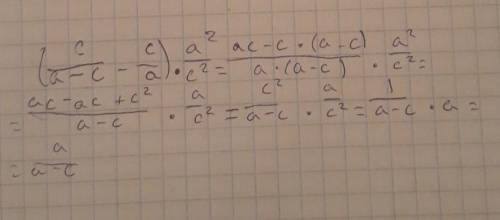 (c/(a-c) - c/a) · a²/c² = (ac-c·(a-c))/(a·(a-c)) · a²/c² =
= (ac-ac+c²)/(a-c) · a/c² = c²/(a-c) · a/c² = 1/(a-c) · a =
= a/(a-c)